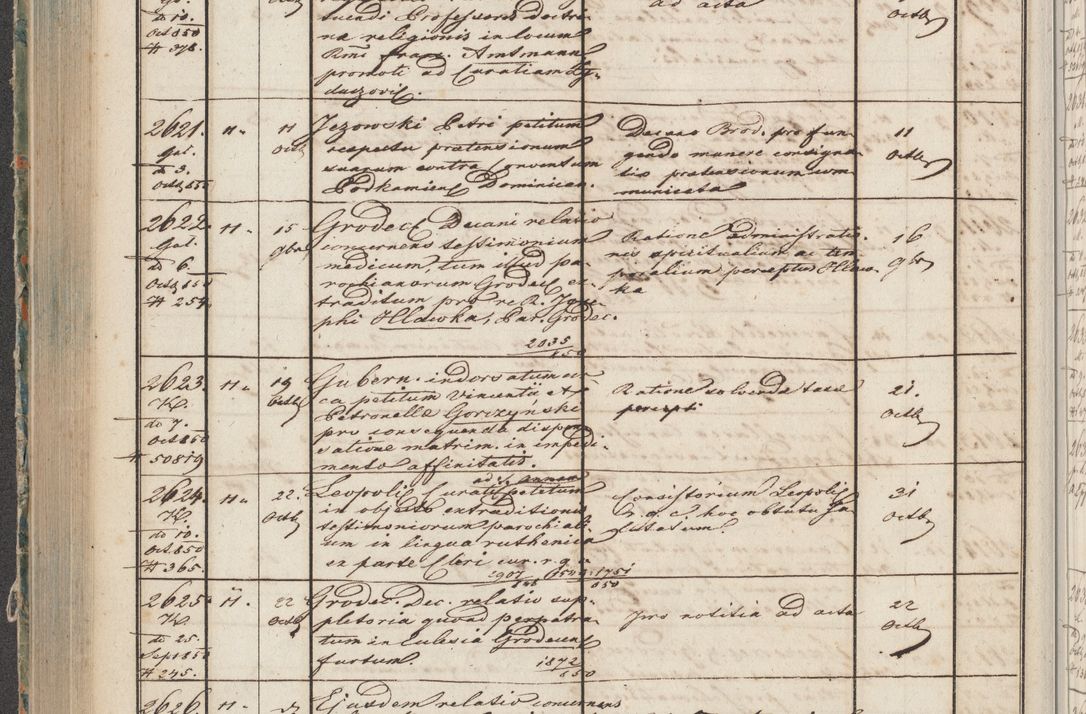 tuendi Professores doctri-
na religionis in locum
Rmi franc. Amtmann
promoti ad Curatiam
ad acta
Octb
do 10.
Oct 850
# 378.
2621.
Gal.
do 3.
Octb 850
11
Octb
Jezowski Petri petitum
respectu pretensionum
suarum contra Conventum
Podkamien Dominican.
Decano Brod. pro fun-
gendo munere consigna-
tis pretensionum com-
municata
11
Octb
2622.
Gal.
do 6.
Octb 850
# 254
15
9br
Grodec Decani relatio
concernens testimonium
medicum, tum illud pa-
rochianorum Grodec ex-
traditum pro re R. Jose-
phi Hlawka, Par. Grodec.
2035
850
Ratione administratio-
nis spiritualium ac tem-
poralium perceptus Hlaw-
ka
16
9br
2623.
K.
do 7.
Oct 850
# 50819
19
Octb
Gubern. indorsatum cir-
ca petitum Vincentii et
Petronella Gorczynski
pro consequenda dispen-
satione matrim. in impedi-
mento affinitatis.
Ratione solvenda taxa
percepti
21.
Octb
2624.
K.
do 10.
Oct 850
# 365.
22.
Octb
Leopoli Curati petitum
in objecto extraditionis
testimoniorum parochiali-
um in lingua ruthenica
ex parte Cleri cur. r. g. c.
2907
1751
850
Consistorium Leopoli
r. g. c. hoc obtutu sa-
lutatum
31
Octb
2625.
K.
do 25.
Sept 850
# 245.
22
Octb
Grodec. Dec. relatio sup-
pletoria quoad perpetra-
tum in Eclesia Grodecen
furtum.
1872
850
Pro notitia ad acta
22
Octb
2626.
Ejusdem relatio concernens